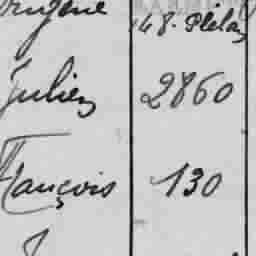 Eugène 48. Plélan
Julien 2860
François 130